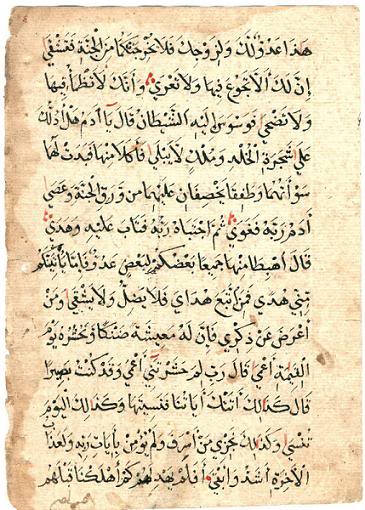 هذا عدو لك ولزوجك فلا يخرجنكما من الجنة فتشقى
إن لك ألا تجوع فيها ولا تعرى وأنك لا تظمأ فيها
ولا تضحى فوسوس إليه الشيطان قال يا آدم هل أدلك
على شجرة الخلد وملك لا يبلى فأكلا منها فبدت لهما
سوآتهما وطفقا يخصفان عليهما من ورق الجنة وعصى
آدم ربه فغوى ثم اجتباه ربه فتاب عليه وهدى
قال اهبطا منها جميعا بعضكم لبعض عدو فإما يأتينكم
مني هدى فمن اتبع هداي فلا يضل ولا يشقى ومن
أعرض عن ذكري فإن له معيشة ضنكا ونحشره يوم
القيمة أعمى قال رب لم حشرتني أعمى وقد كنت بصيرا
قال كذلك أتتك آياتنا فنسيتها وكذلك اليوم
تنسى وكذلك نجزي من أسرف ولم يؤمن بآيات ربه ولعذاب
الآخرة أشد وأبقى أفلم يهد لهم كم أهلكنا قبلهم